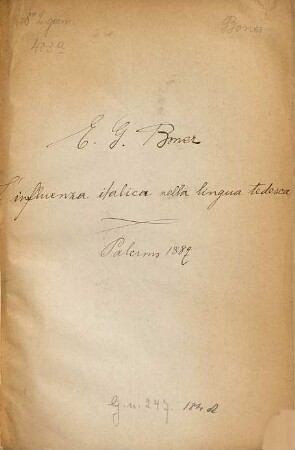 Boner
423a
E. G. Boner
L'influenza italica nella lingua tedesca
Palermo 1889
G. n. 247.